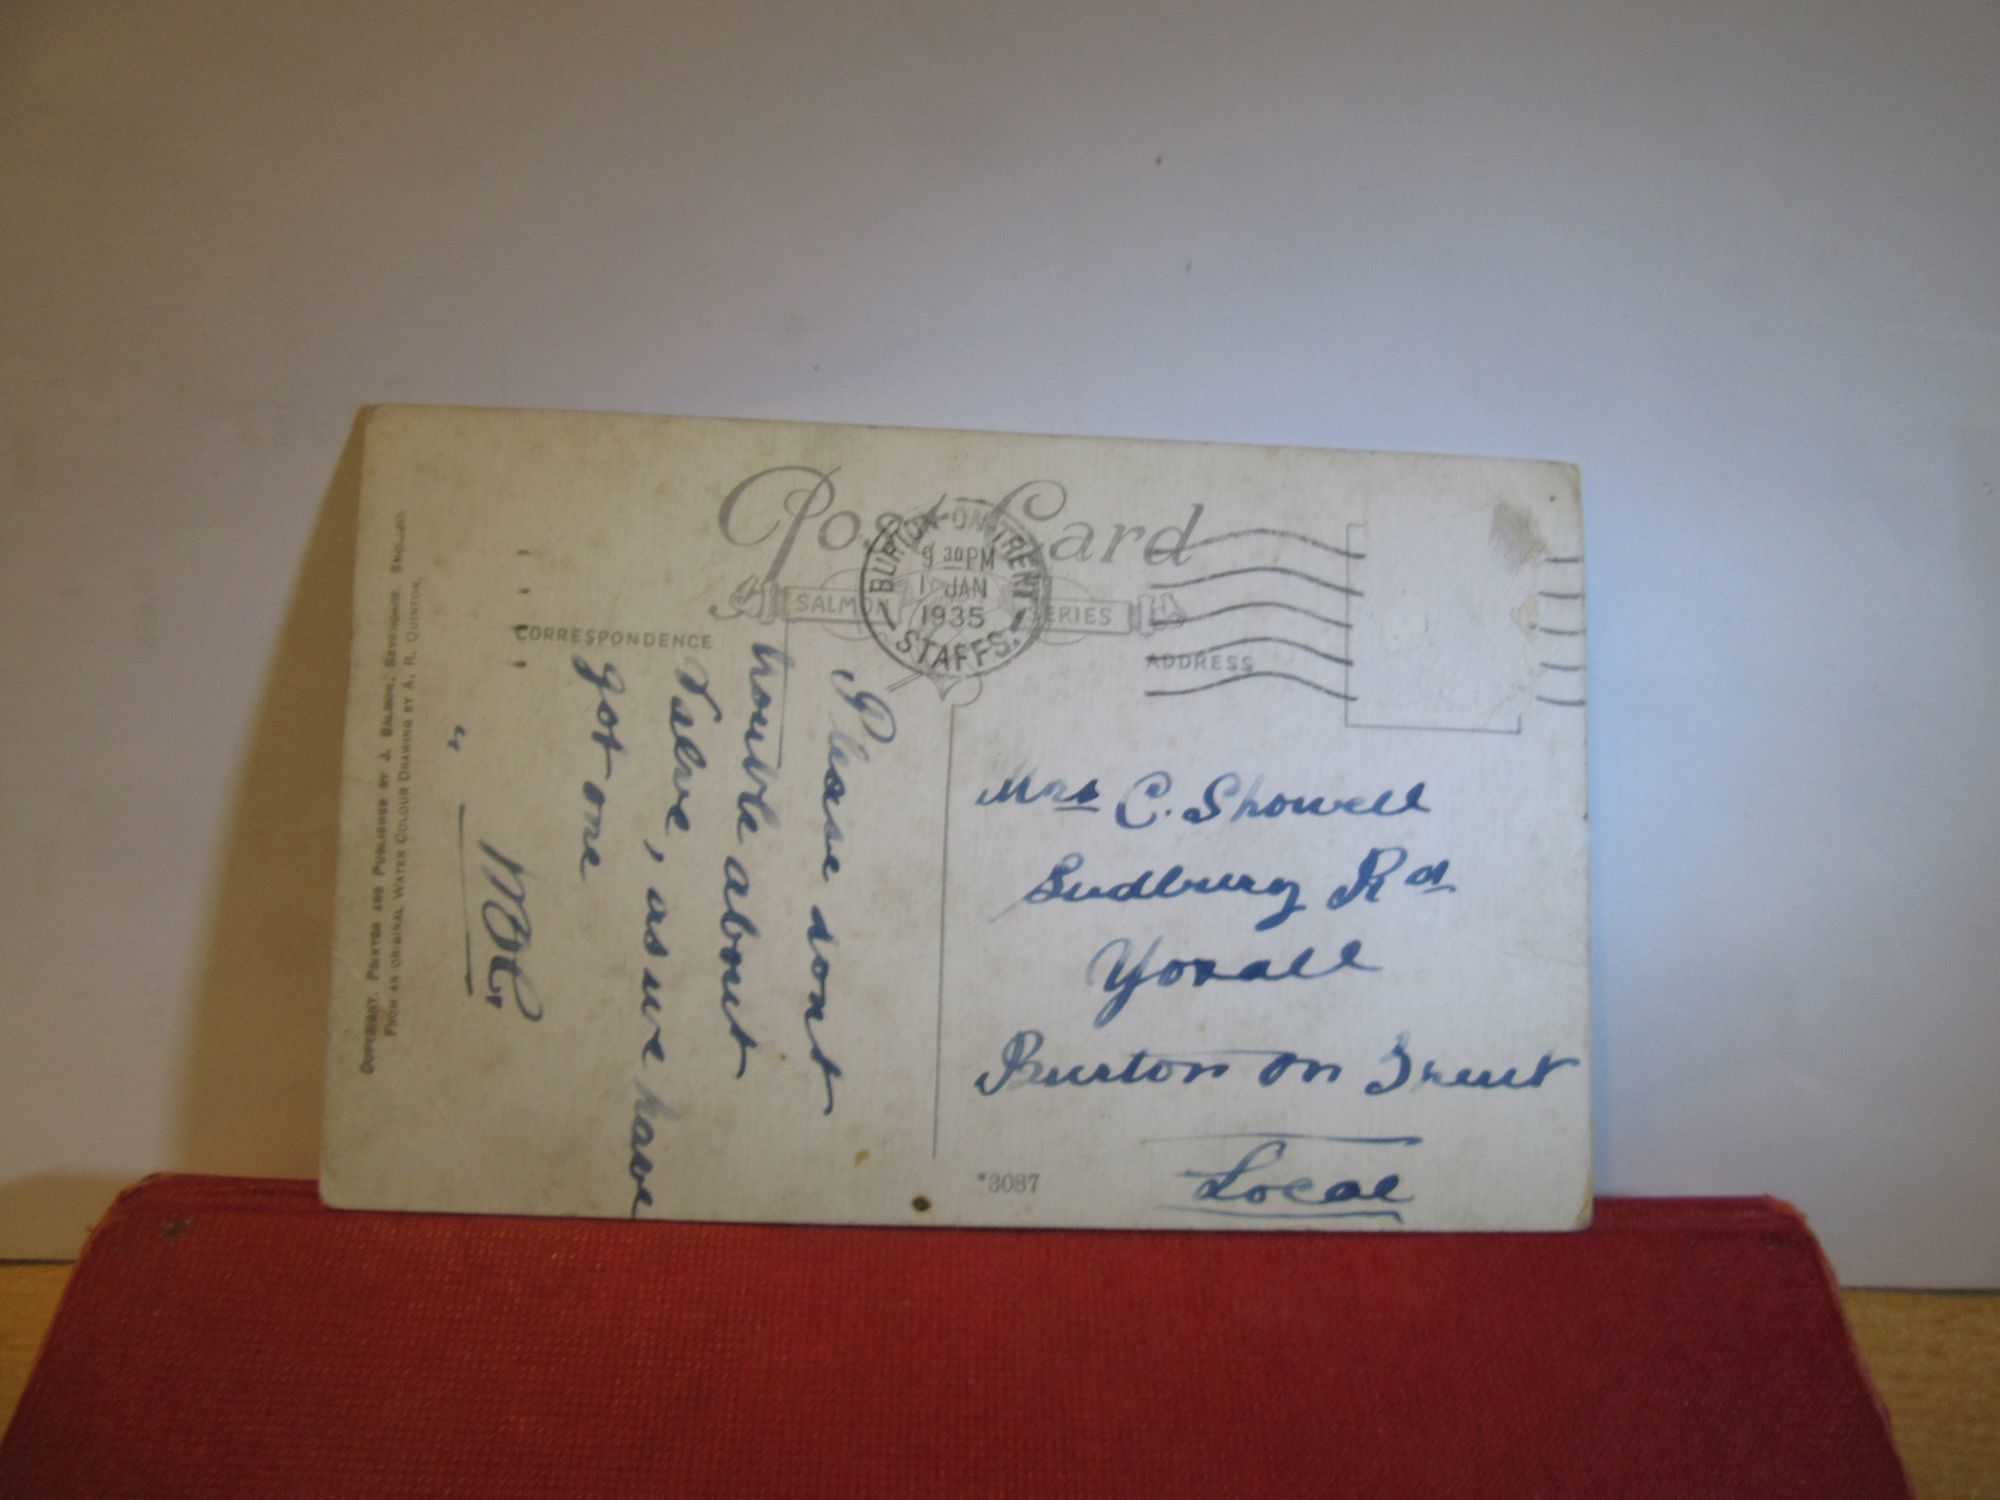 Post Card
SALMON SERIES
BURTON-ON-TRENT
9 30 PM
1 JAN
1935
STAFFS.
CORRESPONDENCE
ADDRESS
Please dont
trouble about
Valve, as we have
got one
Mrs C. Showell
Sudbury Rd
Yoxall
Burton on Trent
Local
*3087
COPYRIGHT. PRINTED AND PUBLISHED BY J. SALMON, SEVENOAKS. ENGLAND
FROM AN ORIGINAL WATER COLOUR DRAWING BY A. R. QUINTON.